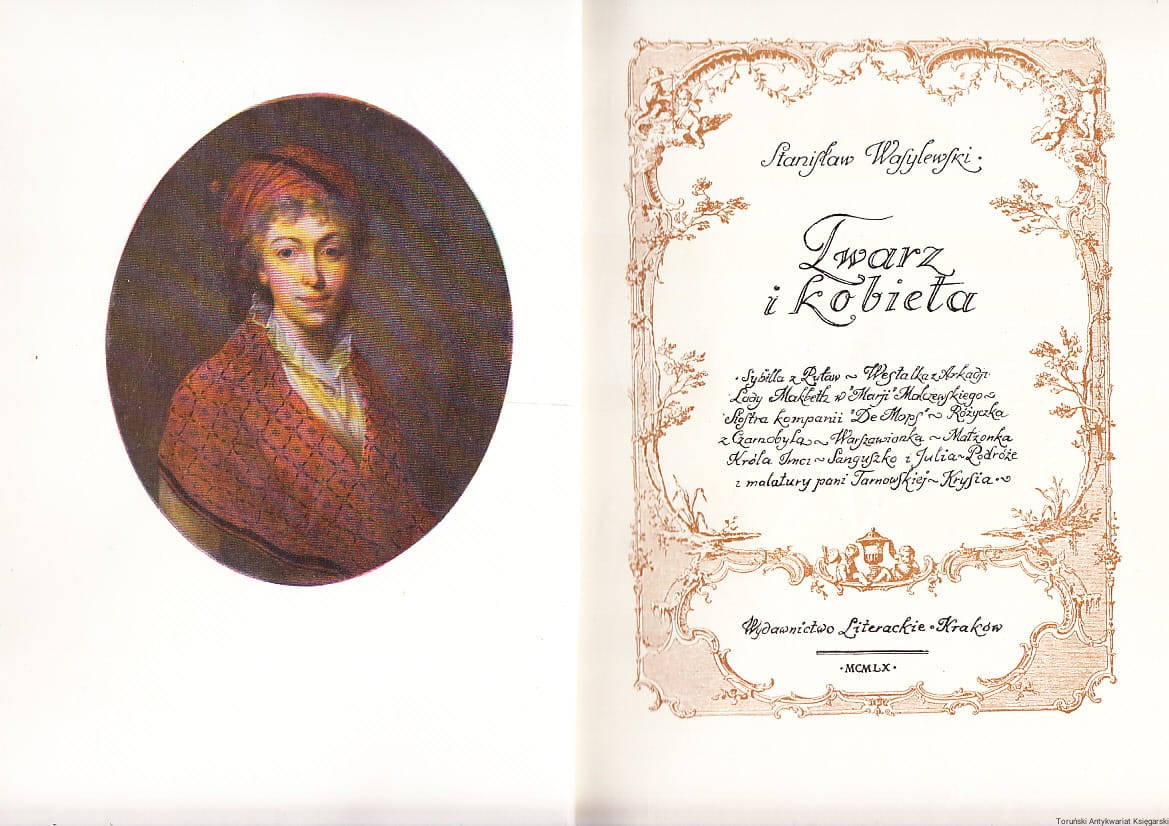 Stanisław Wasylewski.
Twarz
i kobieta
• Sybilla z Puław ~ Westalka z Arkadji
Lady Makbeth w "Marji" Malczewskiego ~
Siostra kompanii "De Mops" ~ Różyczka
z Czarnobyla ~ Warszawianka ~ Małżonka
Króla Imci ~ Sanguszko i Julia ~ Podróże
i malatury pani Tarnowskiej ~ Krysia • ~
Wydawnictwo Literackie • Kraków
• MCMLX •
Toruński Antykwariat Księgarski